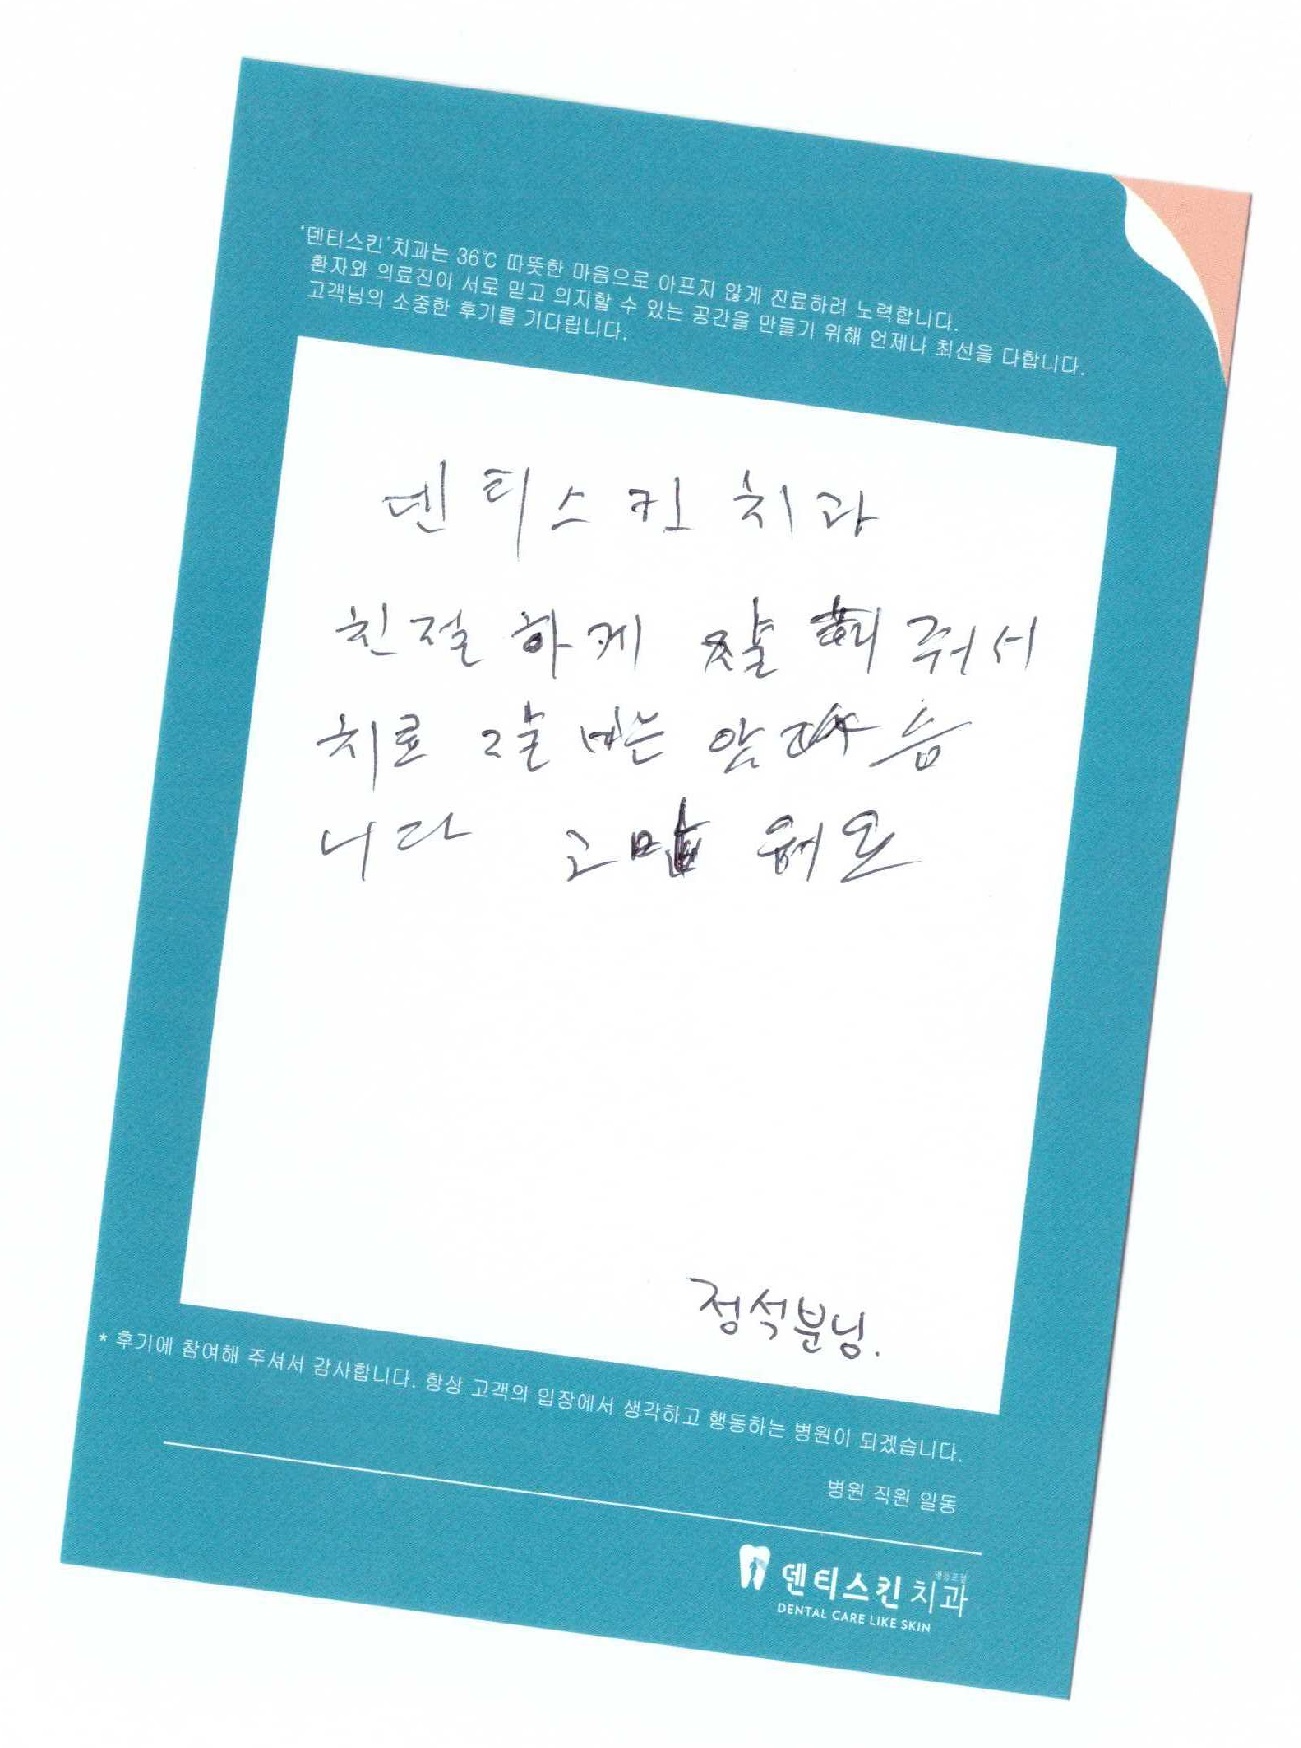 '덴티스킨'치과는 36℃ 따뜻한 마음으로 아프지 않게 진료하려 노력합니다.
환자와 의료진이 서로 믿고 의지할 수 있는 공간을 만들기 위해 언제나 최선을 다합니다.
고객님의 소중한 후기를 기다립니다.
덴티스킨 치과
친절하게 잘 해줘서
치료 잘
니다 고맙워요
정석분님.
* 후기에 참여해 주셔서 감사합니다. 항상 고객의 입장에서 생각하고 행동하는 병원이 되겠습니다.
병원 직원 일동
덴티스킨치과
DENTAL CARE LIKE SKIN